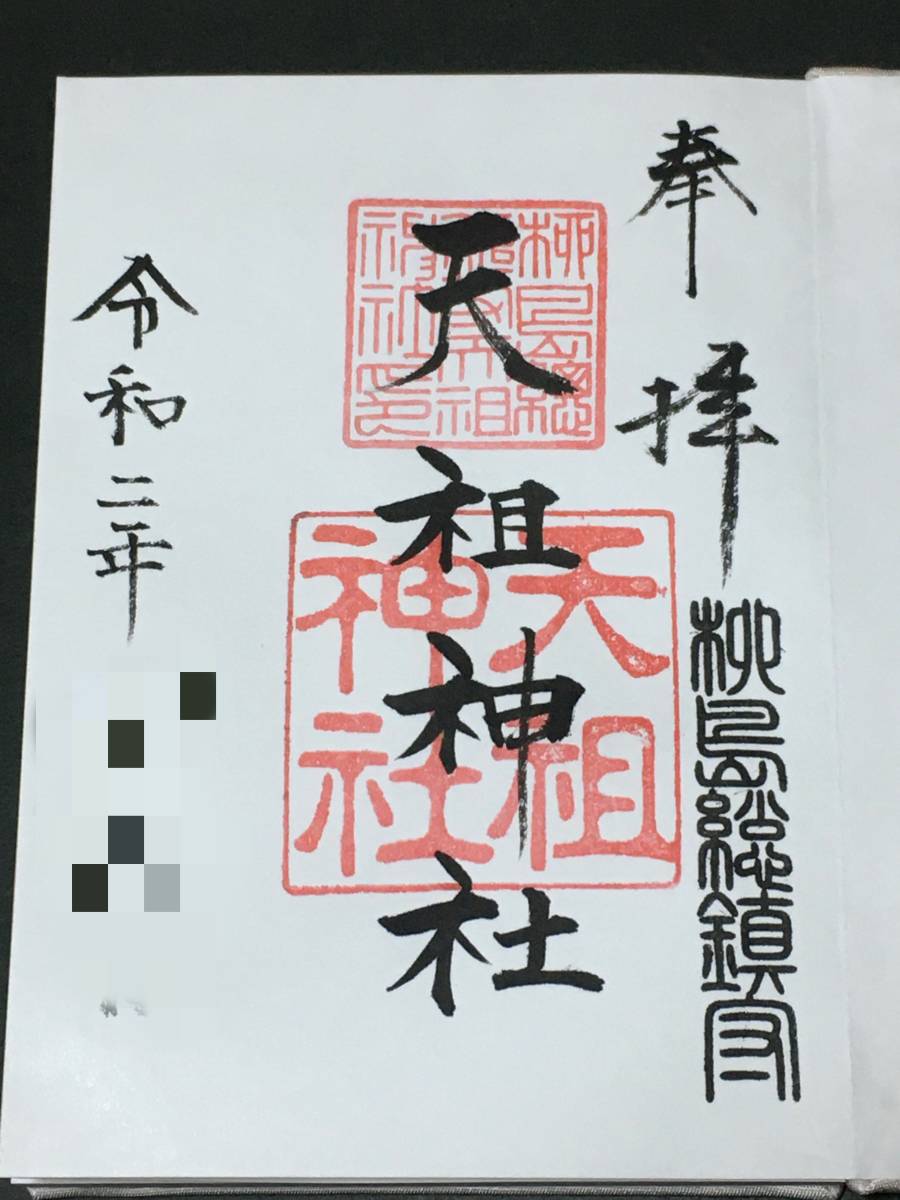 奉拝
柳島総鎮守
天祖神社
柳島總
鎮守天祖
神社印
天祖
神社
令和二年